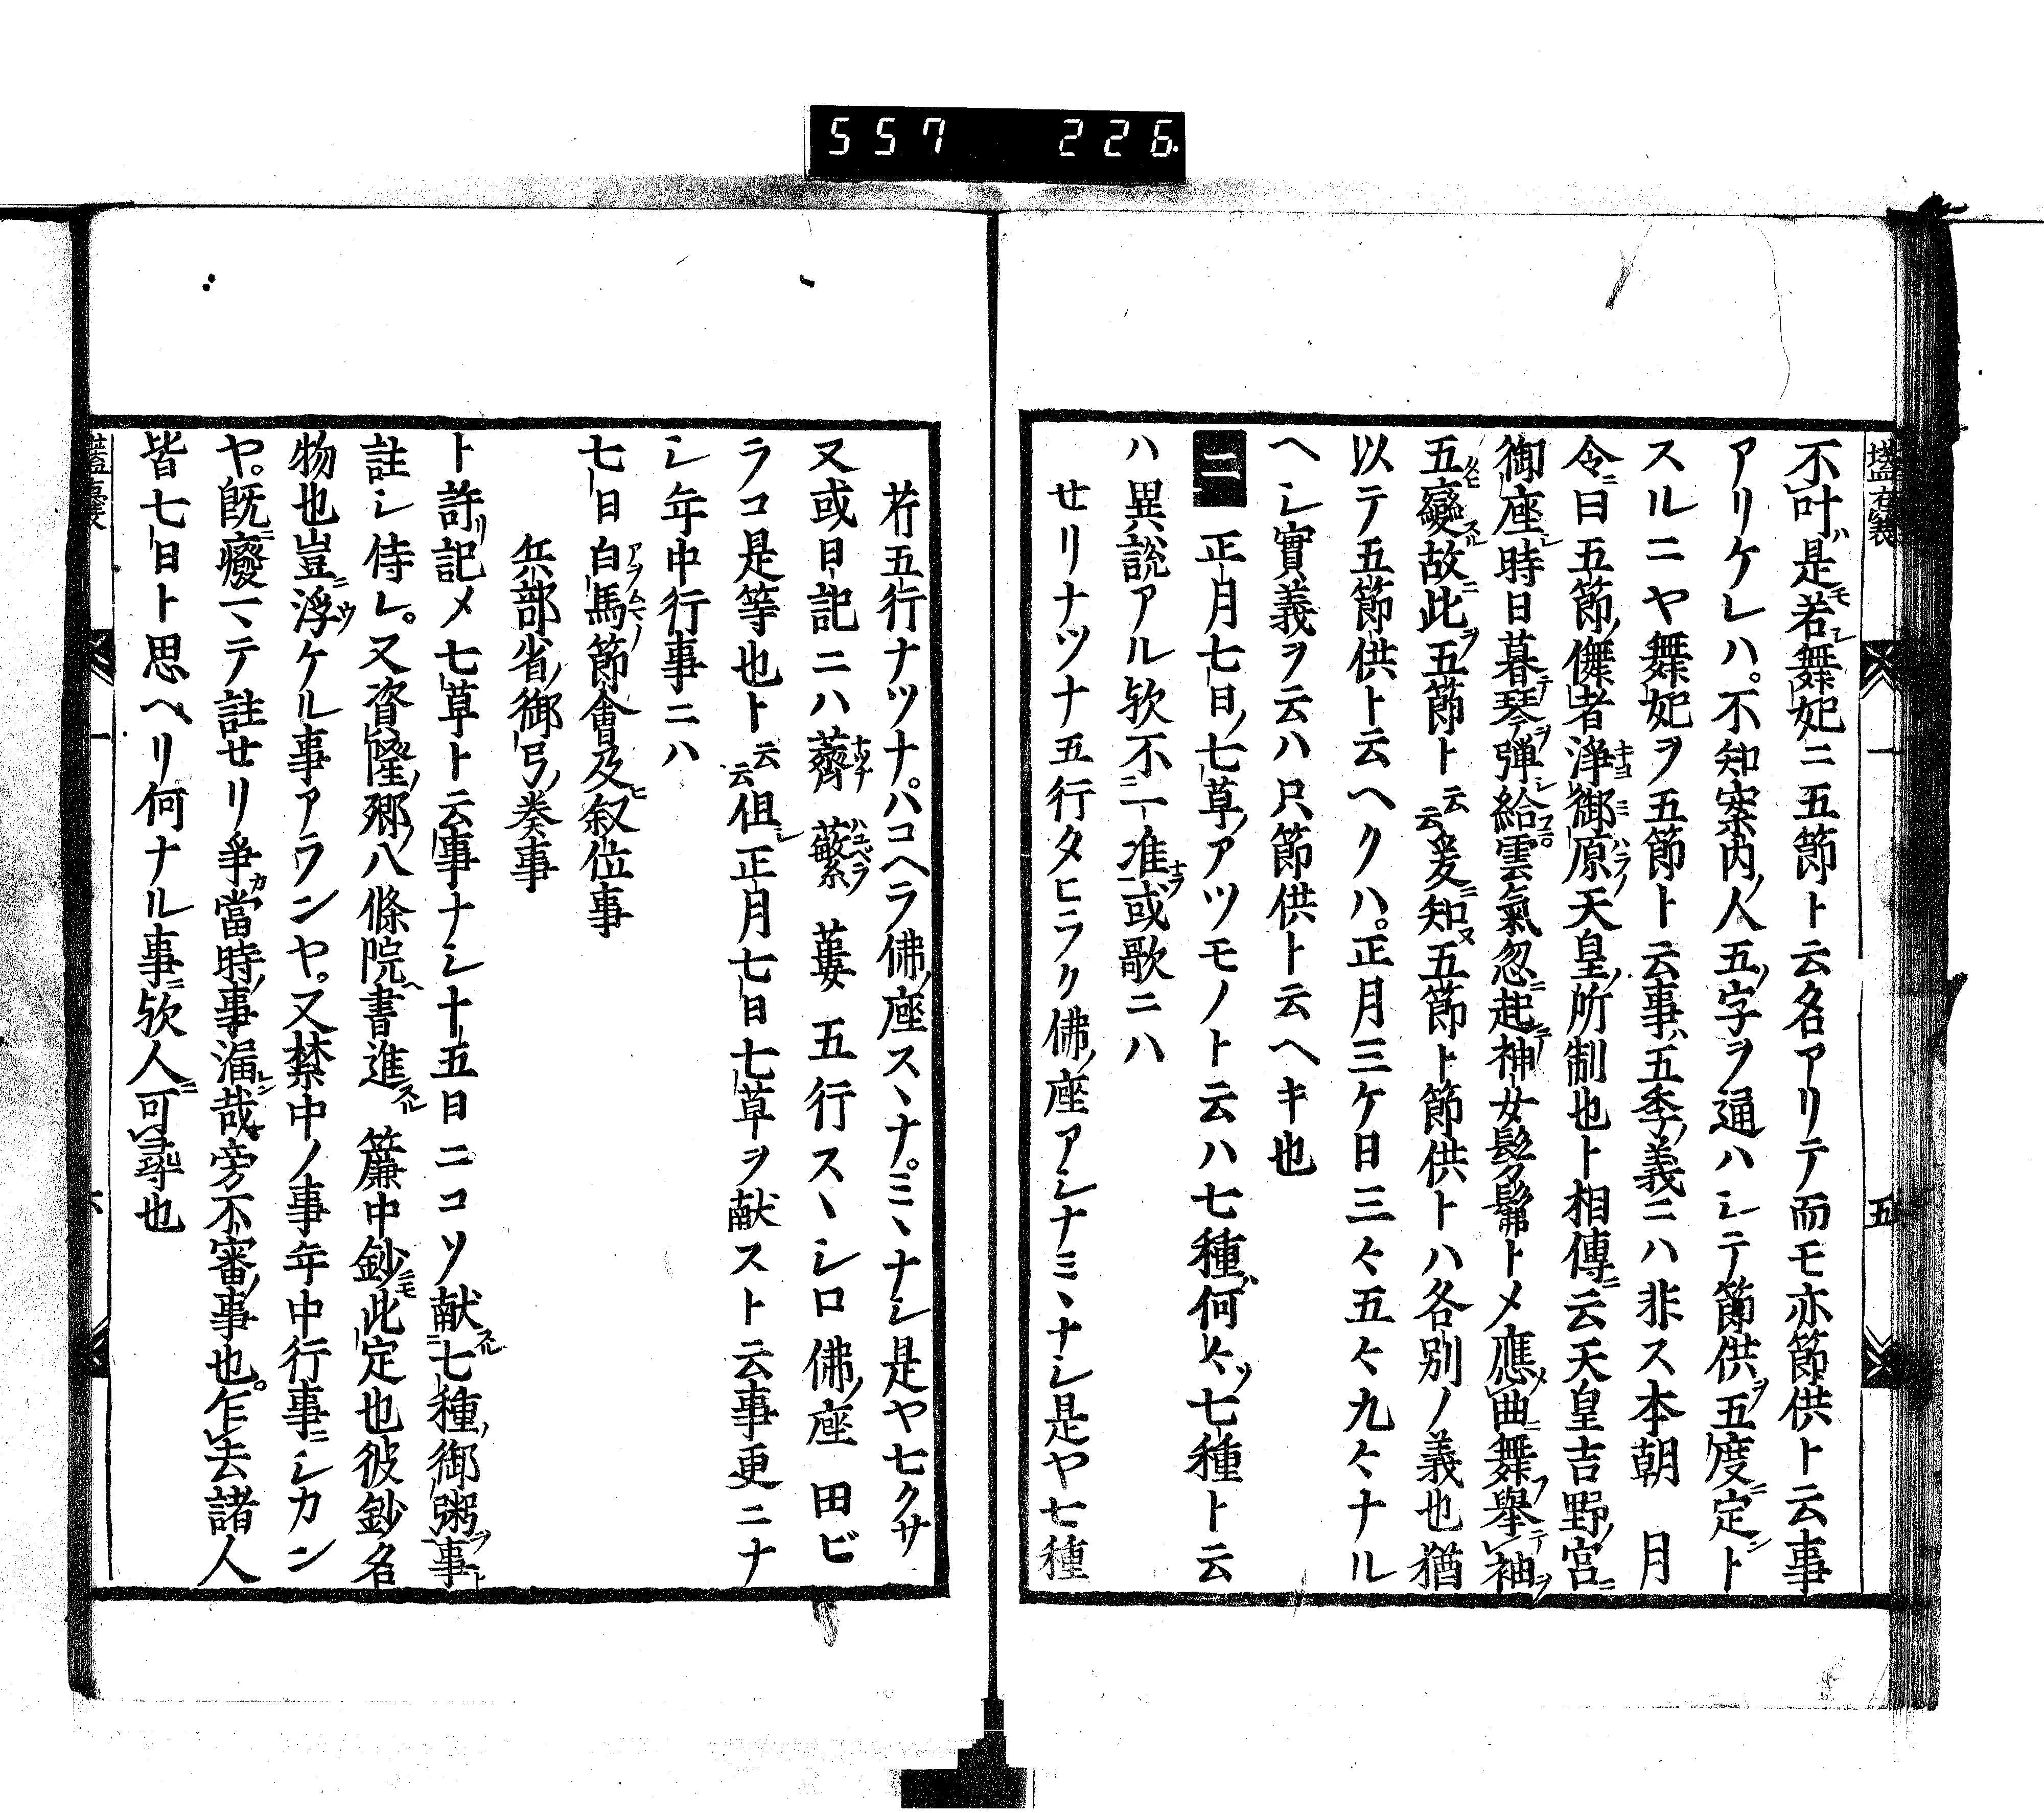 557 226
壒嚢 一 五
不叶是若舞妃ニ五節ト云名アリテ而モ亦節供ト云事
アリケレハ。不知案内人五字ヲ通ハシテ節供ヲ五度ニ定シト
スルニヤ舞妃ヲ五節ト云事ハ五季ノ義ニハ非ス本朝 月
令ニ曰五節ノ儛者浄御原天皇ノ所制也ト相傳ニ云天皇吉野ノ宮ニ
御座シ時日暮テ琴ヲ弾シ給フニ。雲氣忽ニ起テ神女髣髴トメ應メ曲ニ舞フ擧テ袖ヲ
五タヒ變スル故ニ此ヲ五節ト云云爰ニ知ヌ五節ト節供トハ各別ノ義也猶
以テ五節供ト云ヘクハ。正月三ケ日三々五々九々ナル
ヘシ實義ヲ云ハ只節供ト云ヘキ也
二 正月七日ノ七草ノアツモノト云ハ七種ハ何々ソ七種ト云
ハ異説アル欤不一准ナラ或歌ニハ
せリナツナ五行タヒラク佛ノ座アシナミヽナシ是ヤ七種
芹五行ナツナ。ハコヘラ佛ノ座スヽナ。ミヽナシ是ヤ七クサ
又或日記ニハ薺ナツナ 蘩ハコベラ 蔞 五行スヽシロ佛ノ座 田ビ
ラコ是等也ト云云但シ正月七日七草ヲ献スト云事更ニナ
シ年中行事ニハ
七日白馬アヲムマノ節會及ヒ叙位事
兵部省御弓ノ奏事
ト許リ記メ七草ト云事ナシ十五日ニコソ献スル七種ノ御粥ヲ事ト
註シ侍レ。又資隆ノ郷ノ八條院ヘ書進スル 簾中鈔ニモ此定也彼鈔名
物也豈ニ浮ウケル事アランヤ。又禁中ノ事年中行事ニシカン
ヤ。既ニ癈一ヽテ註せリ爭カ當時ノ事漏レン哉旁不審ノ事也。乍去諸人
皆七日ト思ヘリ何ナル事ニ欤人ニ可尋也